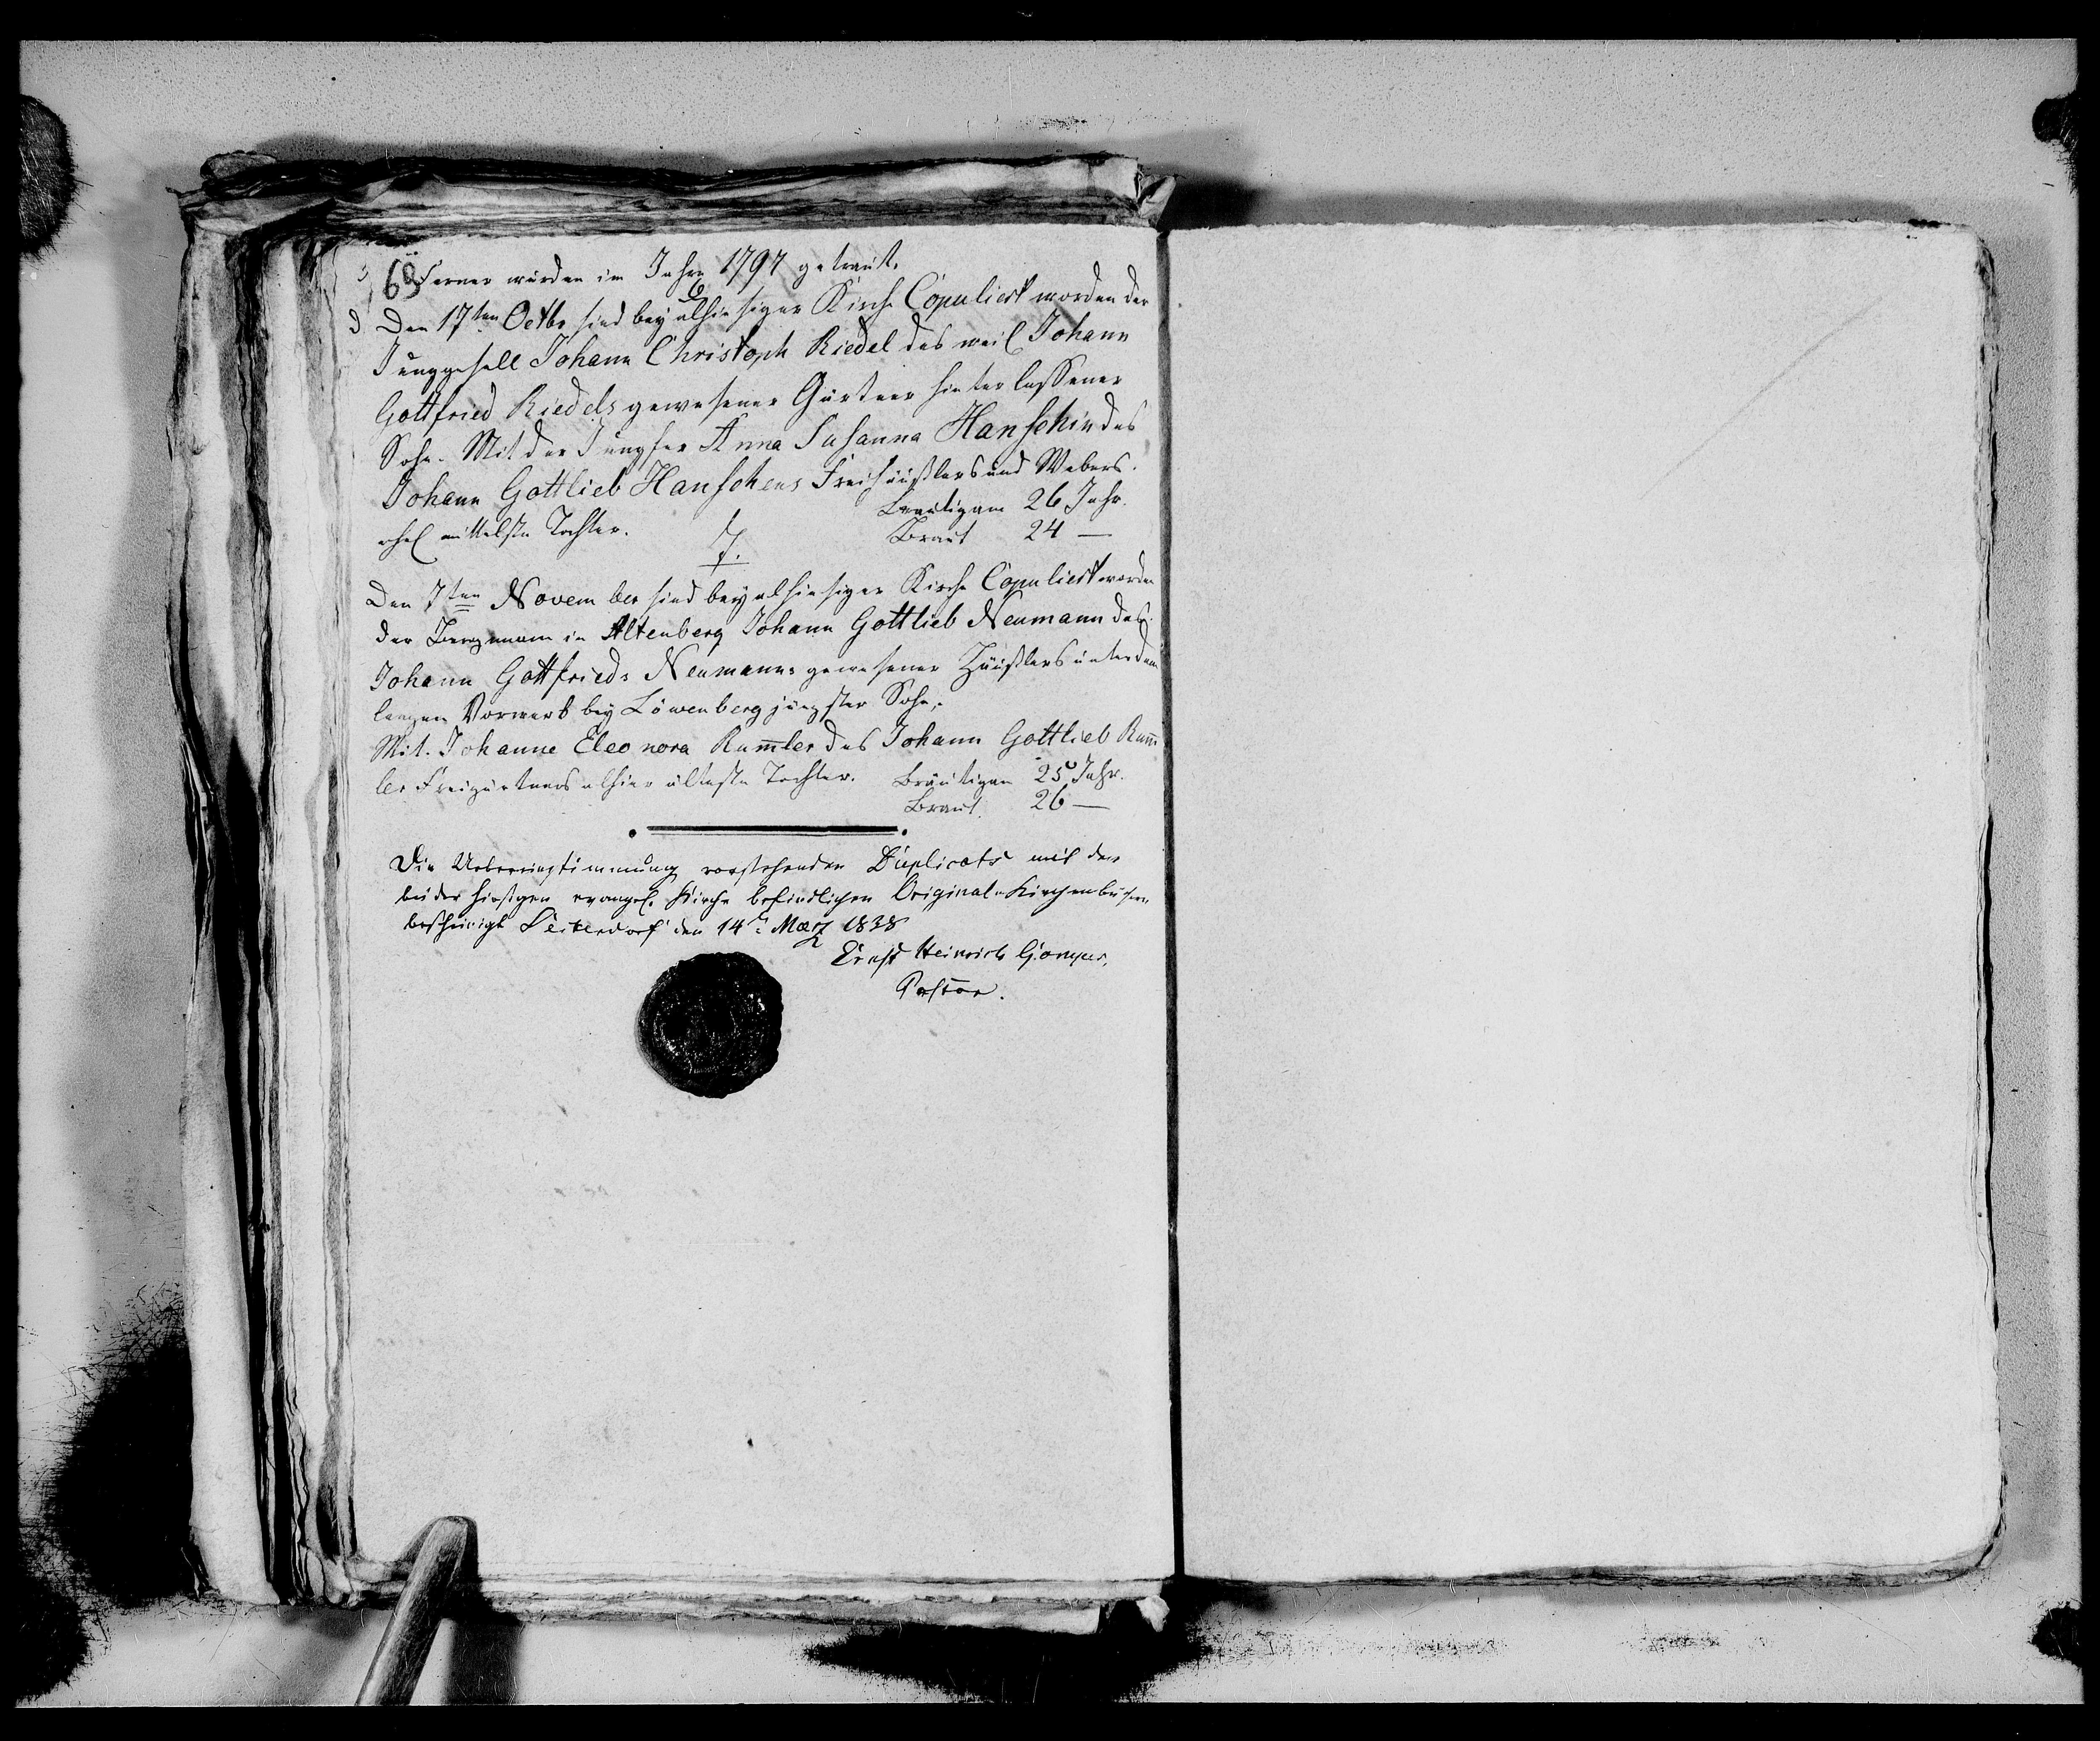 68 Ferner wurden im Jahre 1797 getraut.
6.
Den 17ten Octbr sind bey alhiesiger Kirche Copuliert worden der
Junggesell Johann Christoph Riedel des weil Johann
Gottfried Riedels gewesener Gärtner hinterlassener
Sohn. Mit der Jungfer Anna Susanna Hanschin des
Johann Gottlieb Hanschens Freihäußlers und Webers
ehel mittelste Tochter. Bräutigam 26 Jahr.
Braut 24 —
7.
Den 7ten November sind bey alhiesiger Kirche Copuliert worden
der Bergmann in Altenberg Johann Gottlieb Neumann des
Johann Gottfrieds Neumanns gewesener Häußlers unter dem
langen Vorwerk bey Löwenberg jüngster Sohn,
Mit. Johanne Eleonora Rum̅ler des Johann Gottlieb Rum̅
ler Freigärtners alhier älteste Tochter. Bräutigam 25 Jahr.
Braut 26 —
Die Uebereinstimmung vorstehenden Duplicats mit den
bei der hiesigen evangel. Kirche befindlichen Original-Kirchenbüchern
bescheinigt Seitendorf den 14t März 1838
Ernst Heinrich
Pastor.